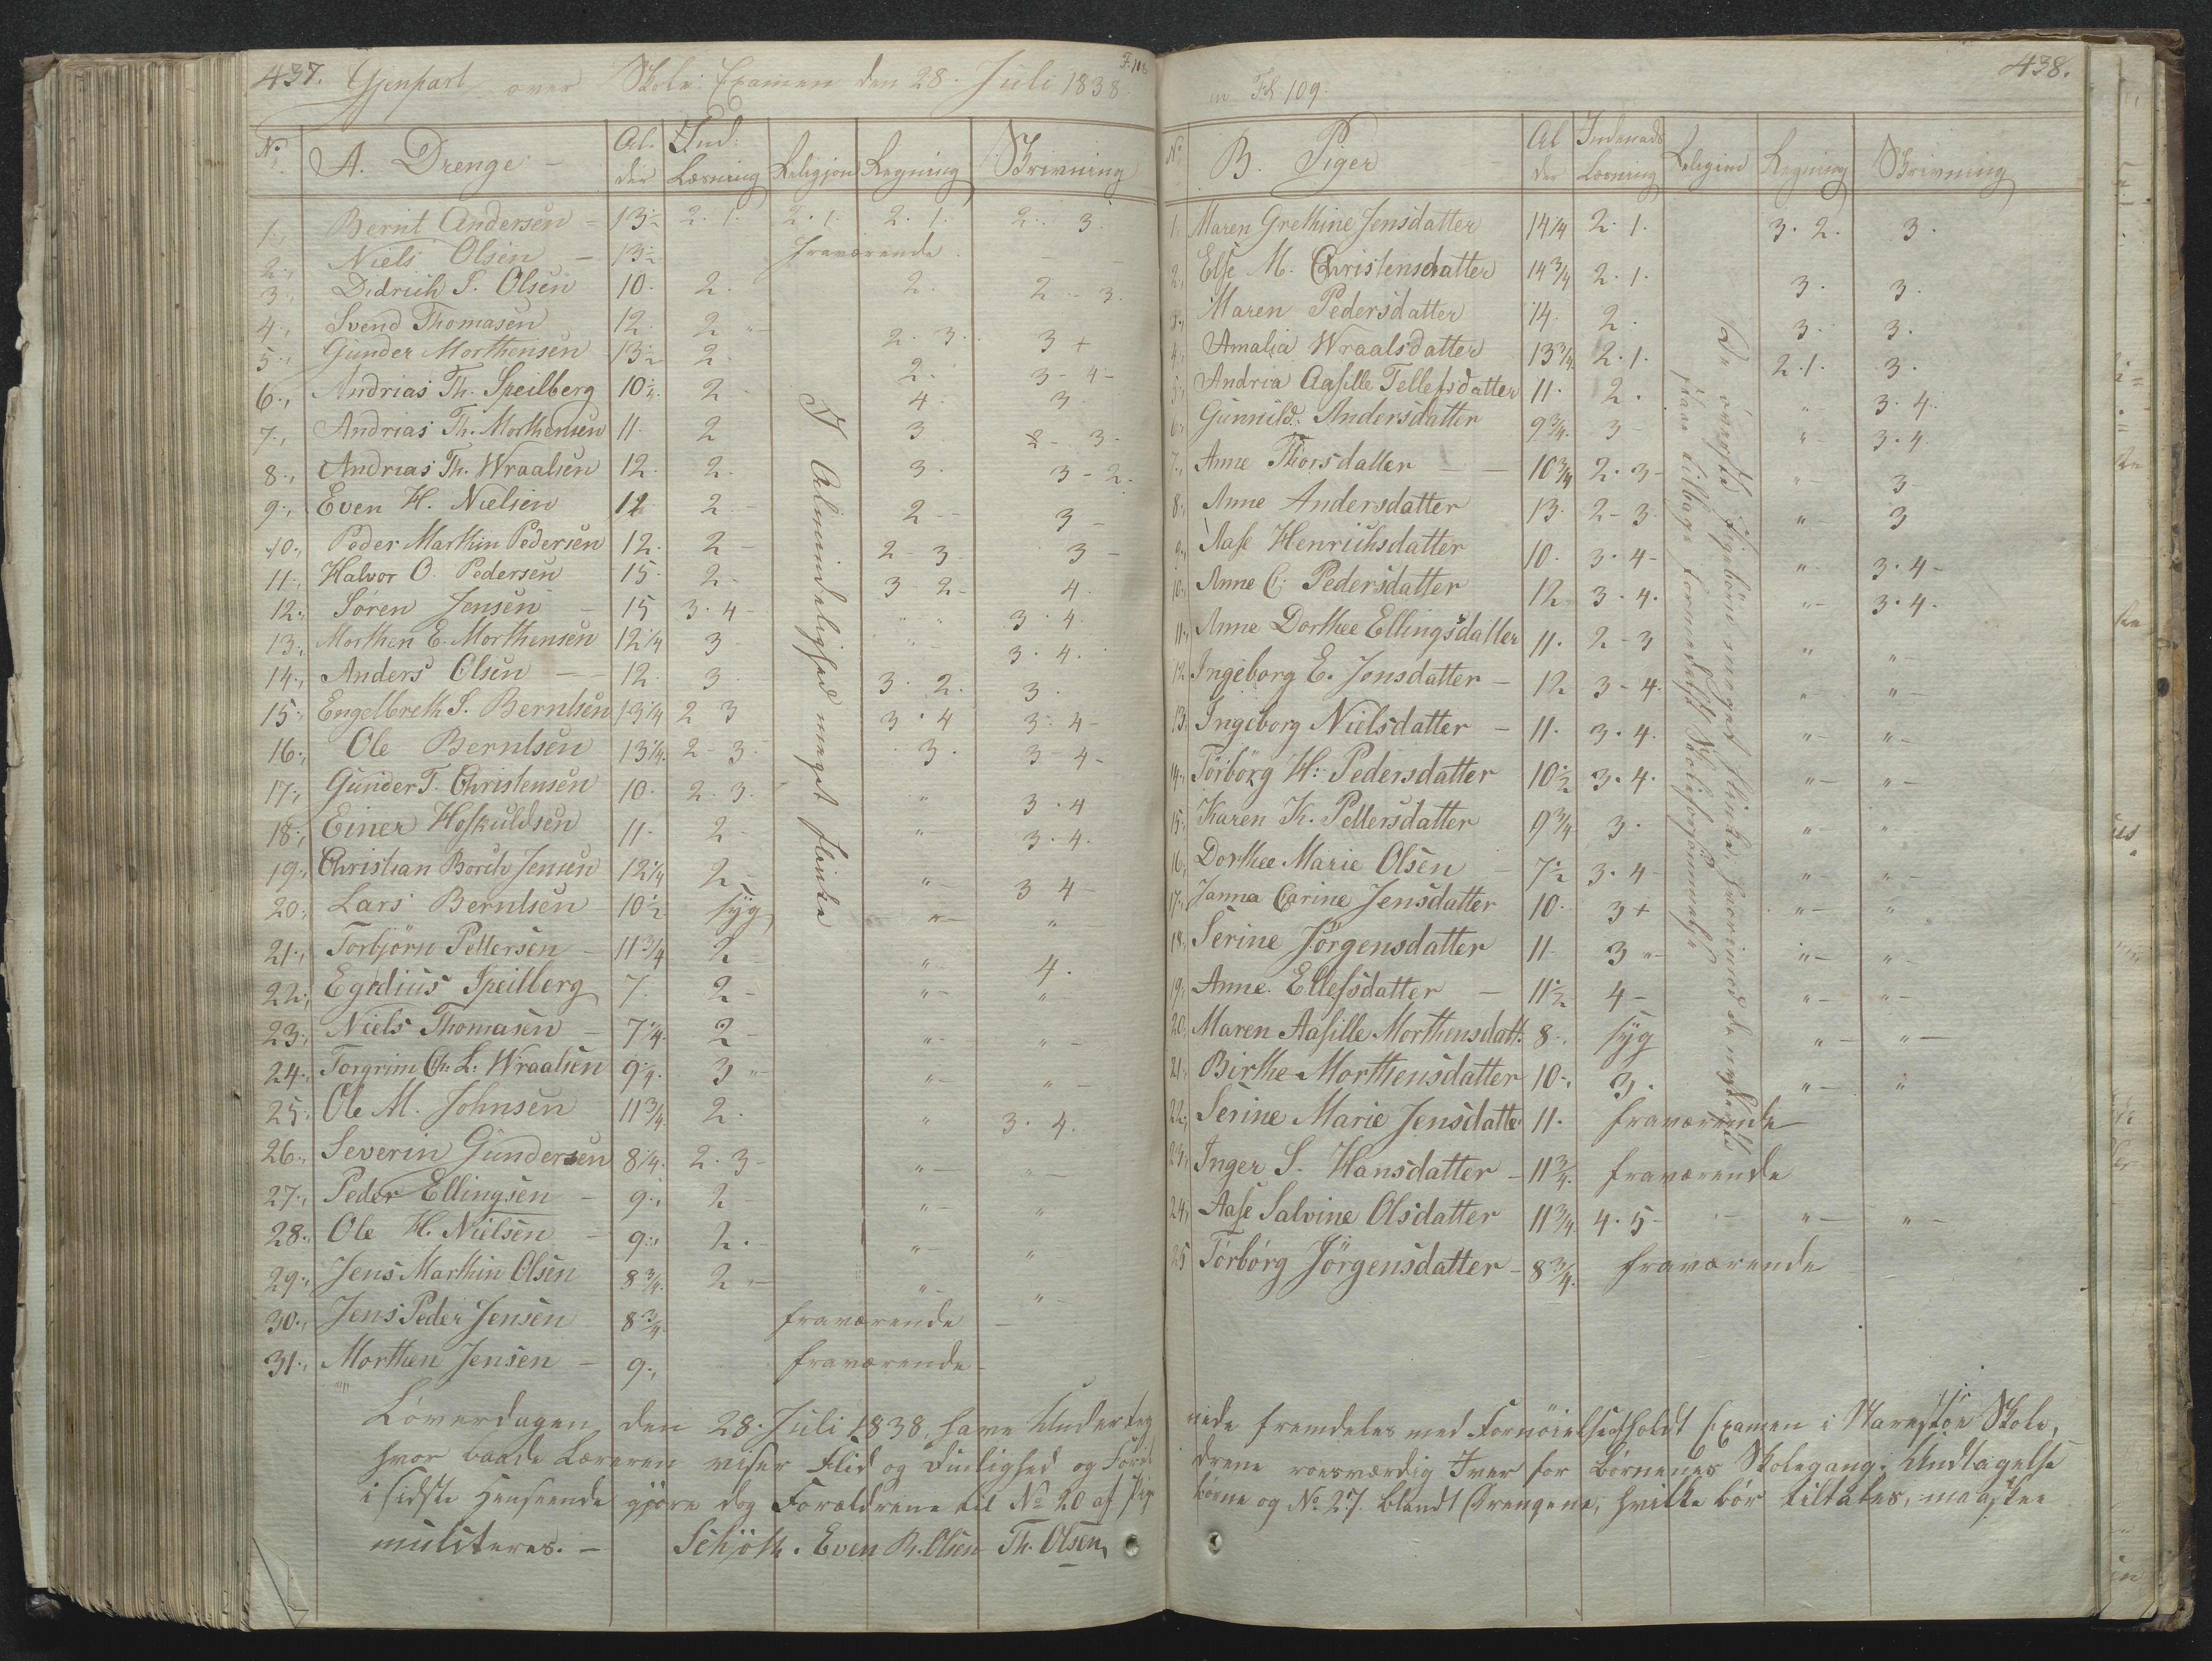 437. Gjenpart over Skole: Examen den 28. Juli 1838. F. 108
No A. Drenge - Al. der Ind: Læsning Religion Regning Skrivning
1., Bernt Andersen - 13½ 2. 1. 2. 1. 2. 1. 2. 3.
2., Niels Olsen - 13½ fraværende - -
3., Didrich S. Olsen 10. 2. 2. 2. 3.
4., Svend Thomasen 12. 2 " - 2. 3. 3 +
5., Gunder Morthensen 13½ 2. 2. 3 - 4 -
6., Andrias Th. Speilberg 10½. 2 - 4. 3.
7., Andrias Th. Morthensen 11. 2 3 2 - 3.
8., Andrias Th. Wraalsen 12. 2. 3. 3 - 2.
9., Even H. Nielsen 12 2 - 2 - 3 -
10., Peder Marthin Pedersen 12. 2 - 2 - 3 - 3 -
11., Halvor O. Pedersen 15. 2 - 3 - 2 - 4.
12., Søren Jensen - 15 3. 4 - " " 3. 4.
13., Morthen E. Morthensen 12¼ 3 " - 3. 4.
14., Anders Olsen - - 12. 3. 3. 2. 3.
15., Engelbreth S. Berntsen 13¼ 2 3 3. 4 3. 4 -
16., Ole Berntsen 13¼. 2 - 3. 3. 3 - 4 -
17., Gunder T. Christensen 10. 2. 3. " 3. 4
18., Einer Hoskuldsen 11. 2 - " - 3. 4.
19., Christian Borch Jensen 12¼ 2 - " - 3 4 -
20., Lars Berntsen 10½ syg " - " -
21., Torbjørn Pettersen - 11¾ 2 - " - 4.
22., Egidius Speilberg 7. 2 - " - " -
23., Niels Thomasen - 7¼. 2 - " - " -
24., Torgrim Ch: L: Wraalsen 9¼. 3 " - " - " -
25., Ole M. Johnsen 11¾ 2. " 3. 4.
26., Severin Gundersen 8¼. 2. 3 - " - " -
27., Peder Ellingsen - 9., 2 - " - "
28., Ole H. Nielsen - 9., 2. - " - " -
29., Jens Marthin Olsen 8¾. 2 " - " - " -
30., Jens Peder Jensen 8¾ fraværende -
31., Morthen Jensen - 9., fraværende -
I Almindelighed meget flinke
Løverdagen den 28. Juli 1838, have Underteg
hvor baade Læreren viser Flid og Duelighed og Foræl
i sidste Henseende gjøre dog Forældrene til No 20 af Pige
mulcteres. - Schjöth. Even R. Olsen Th. Olsen,
Fol. 109. 438.
No B. Piger Al der Indenads Læsning Religion Regning Skrivning
1., Maren Grethine Jensdatter 14¼ 2. 1. 3. 2. 3.
2., Else M. Christensdatter 14¾ 2. 1. 3. 3.
3., Maren Pedersdatter 14. 2. 3. 3.
4., Amalia Wraalsdatter 13¾ 2. 1. 2. 1. 3.
5., Andria Aasille Tellefsdatter 11. 2. " - 3. 4.
6., Gunnild Andersdatter 9¾. 3 - " - 3. 4.
7., Anne Thorsdatter - - 10¾ 2. 3 - " - 3 -
8., Anne Andersdatter 13. 2 - 3. " - 3
9., Aase Henrichsdatter 10. 3. 4 - " - 3. 4 -
10., Anne C. Pedersdatter 12 3. 4. " - 3. 4.
11., Anne Dorthee Ellingsdatter 11. 2 - 3 " "
12. Ingeborg E. Jensdatter - 12 3 - 4. " - " -
13. Ingeborg Nielsdatter - 11. 3. 4. " - " -
14., Torborg H: Pedersdatter 10½ 3. 4. " - " -
15., Karen K. Pettersdatter 9¾ 3. " - "
16., Dorthee Marie Olsen - 7½ 3. 4 - " - " -
17., Janna Carine Jensdatter 10. 3 + " - "
18., Serine Jørgensdatter 11 - 3 " - " - " -
19., Anne Ellefsdatter - 11½ 4 - " - " -
20., Maren Aasille Morthensdatt. 8. syg " - " -
21., Birthe Morthensdatter 10 -, 3. " - "
22., Serine Marie Jensdatte 11. fraværende
23., Inger S. Hansdatter - 11¾. fraværende
24., Aase Salvine Olsdatter 11¾. 4. 5 - - " - " -
25 Torborg Jörgensdatter - 8¾. fraværende
De øverste Pigebørn meget flinke, hvorimod de nederste
staae tilbage formedelst Skoleforsømmelse
nede fremdeles med Fornøielse afholdt Examen i Narestøe Skole,
drene roesværdig Iver for Børnenes Skolegang. Undtagelse
børne og No 27 blandt Drengene, hvilke bør tiltales, maaskee